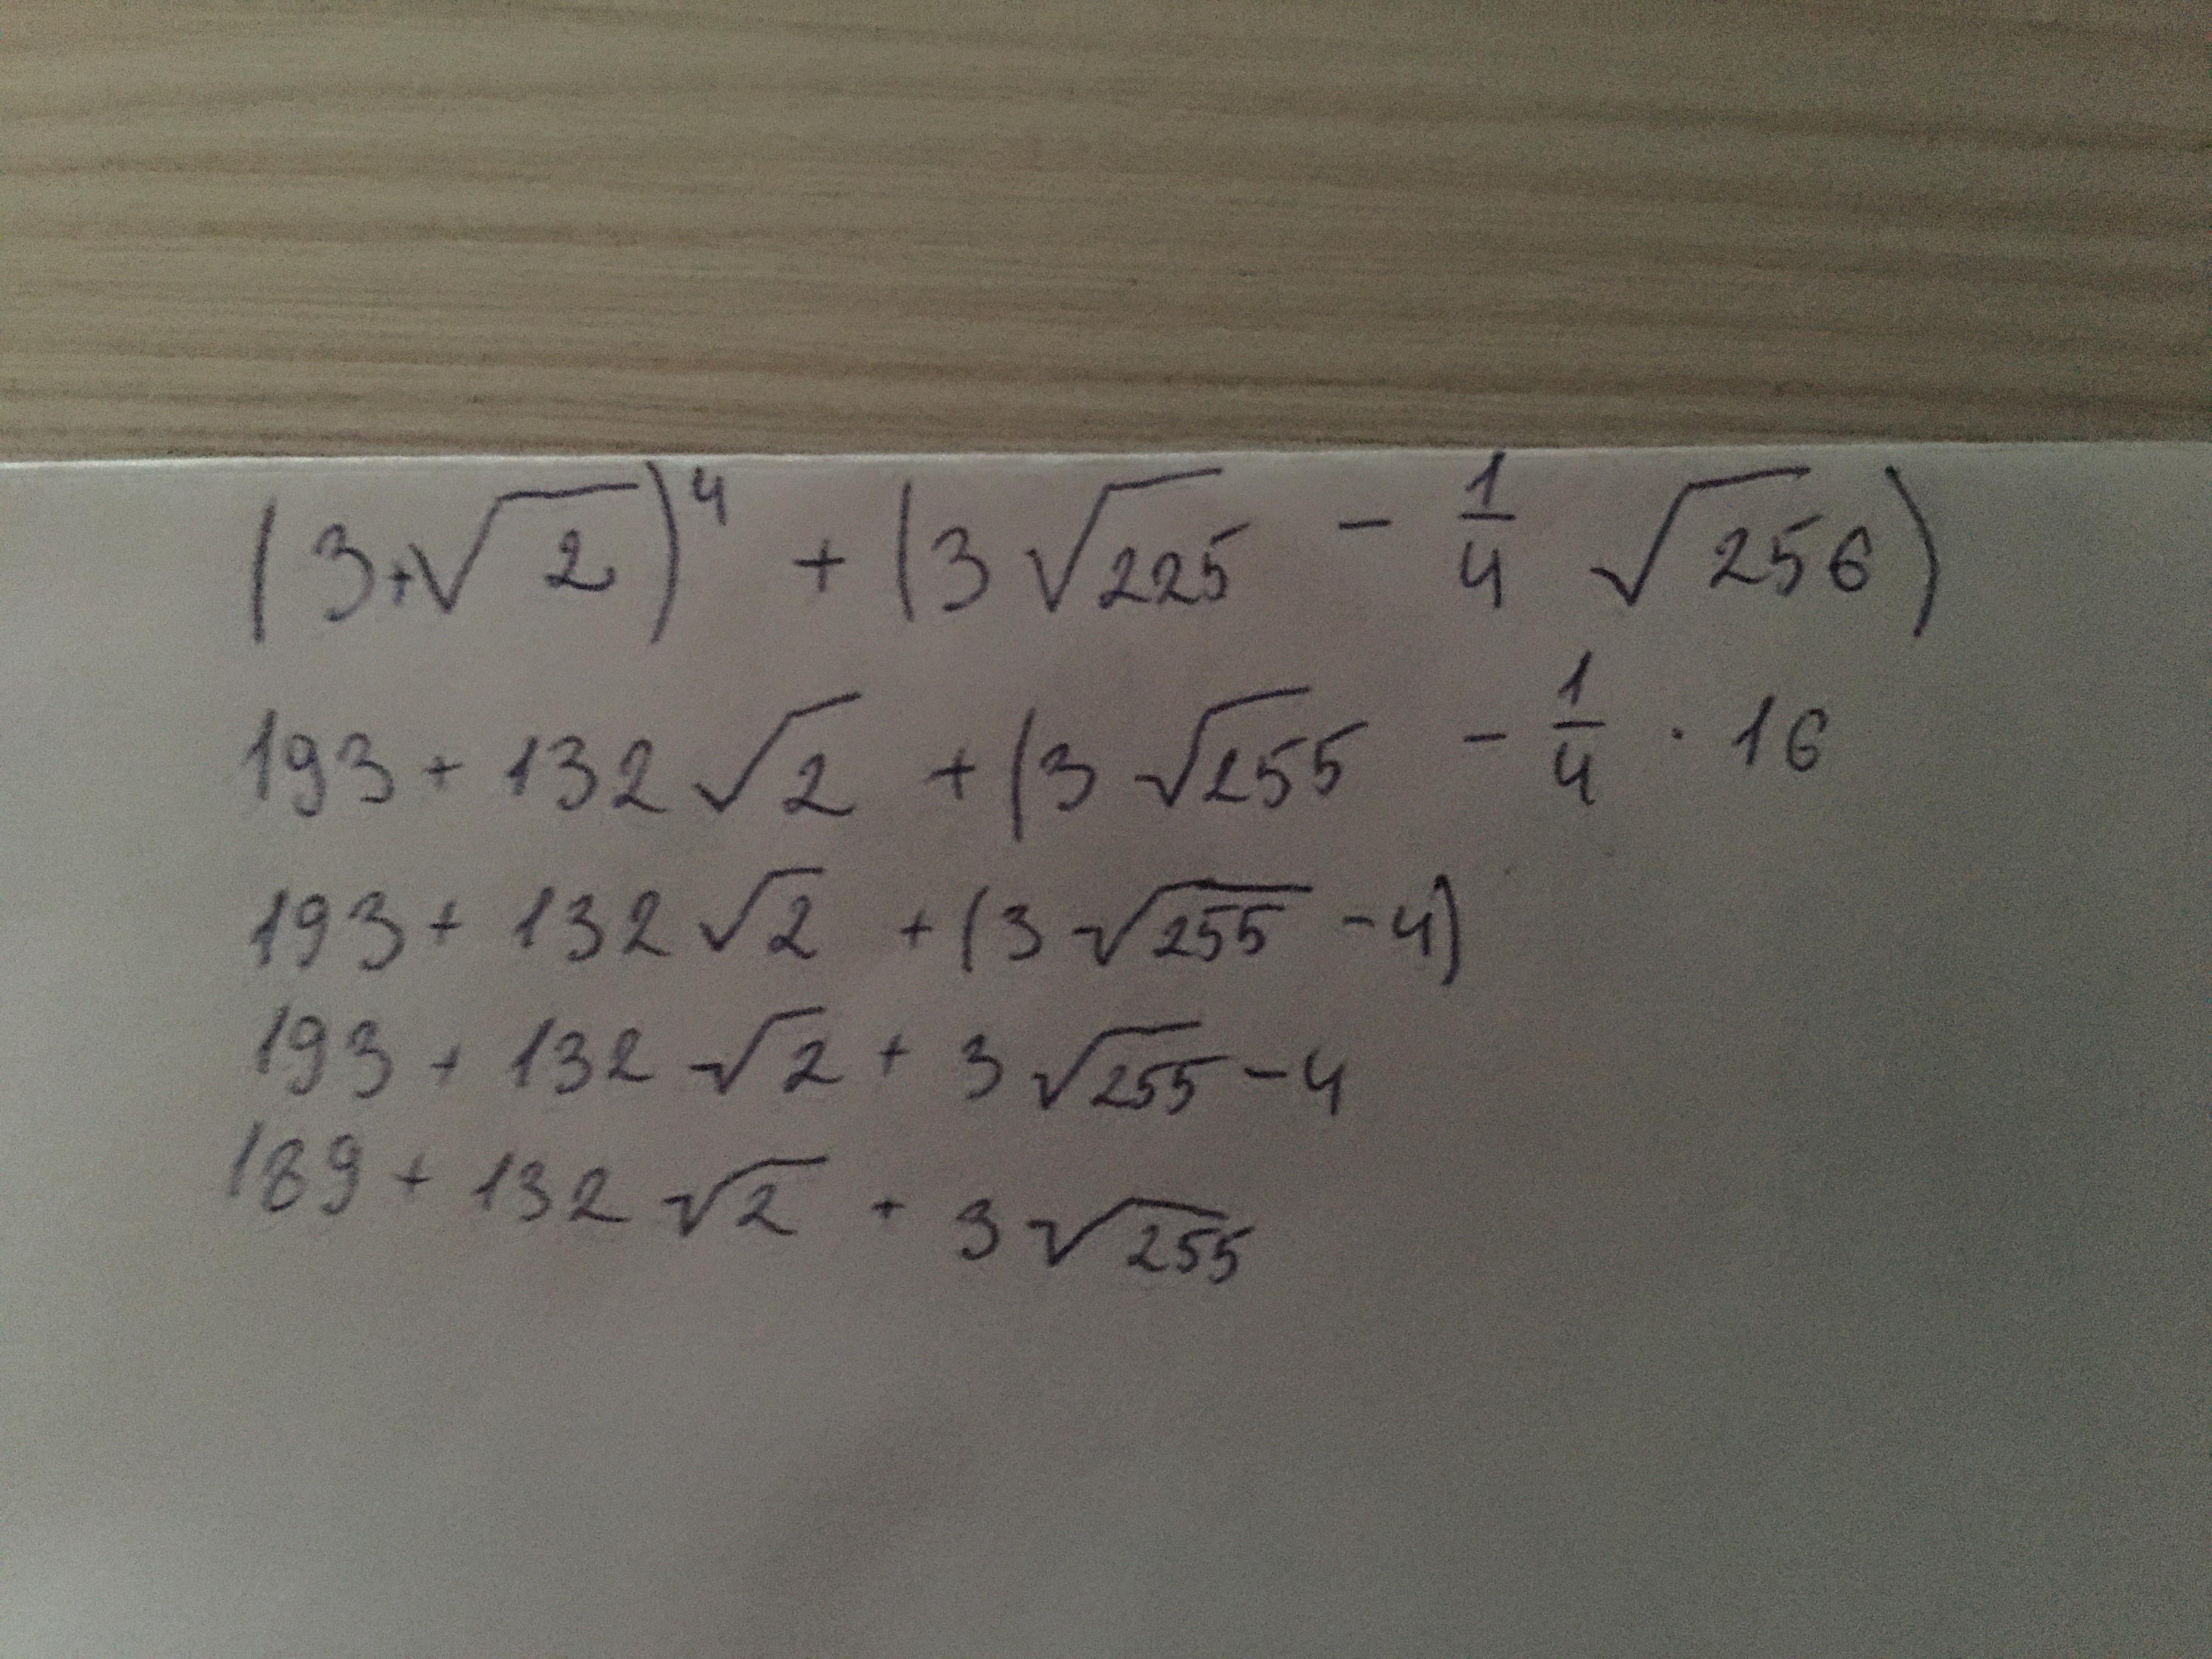 (3+√2)⁴ + (3√225 - 1/4 √256)
193 + 132√2 + (3√255 - 1/4 · 16
193 + 132√2 + (3√255 - 4)
193 + 132√2 + 3√255 - 4
189 + 132√2 + 3√255